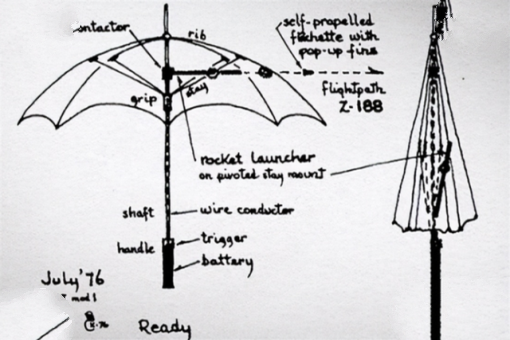 contactor
rib
self-propelled
flechette with
pop-up fins
stay
grip
flightpath
Z-188
rocket launcher
on pivoted stay mount
shaft
wire conductor
handle
trigger
battery
July '76
mod 1
Ready